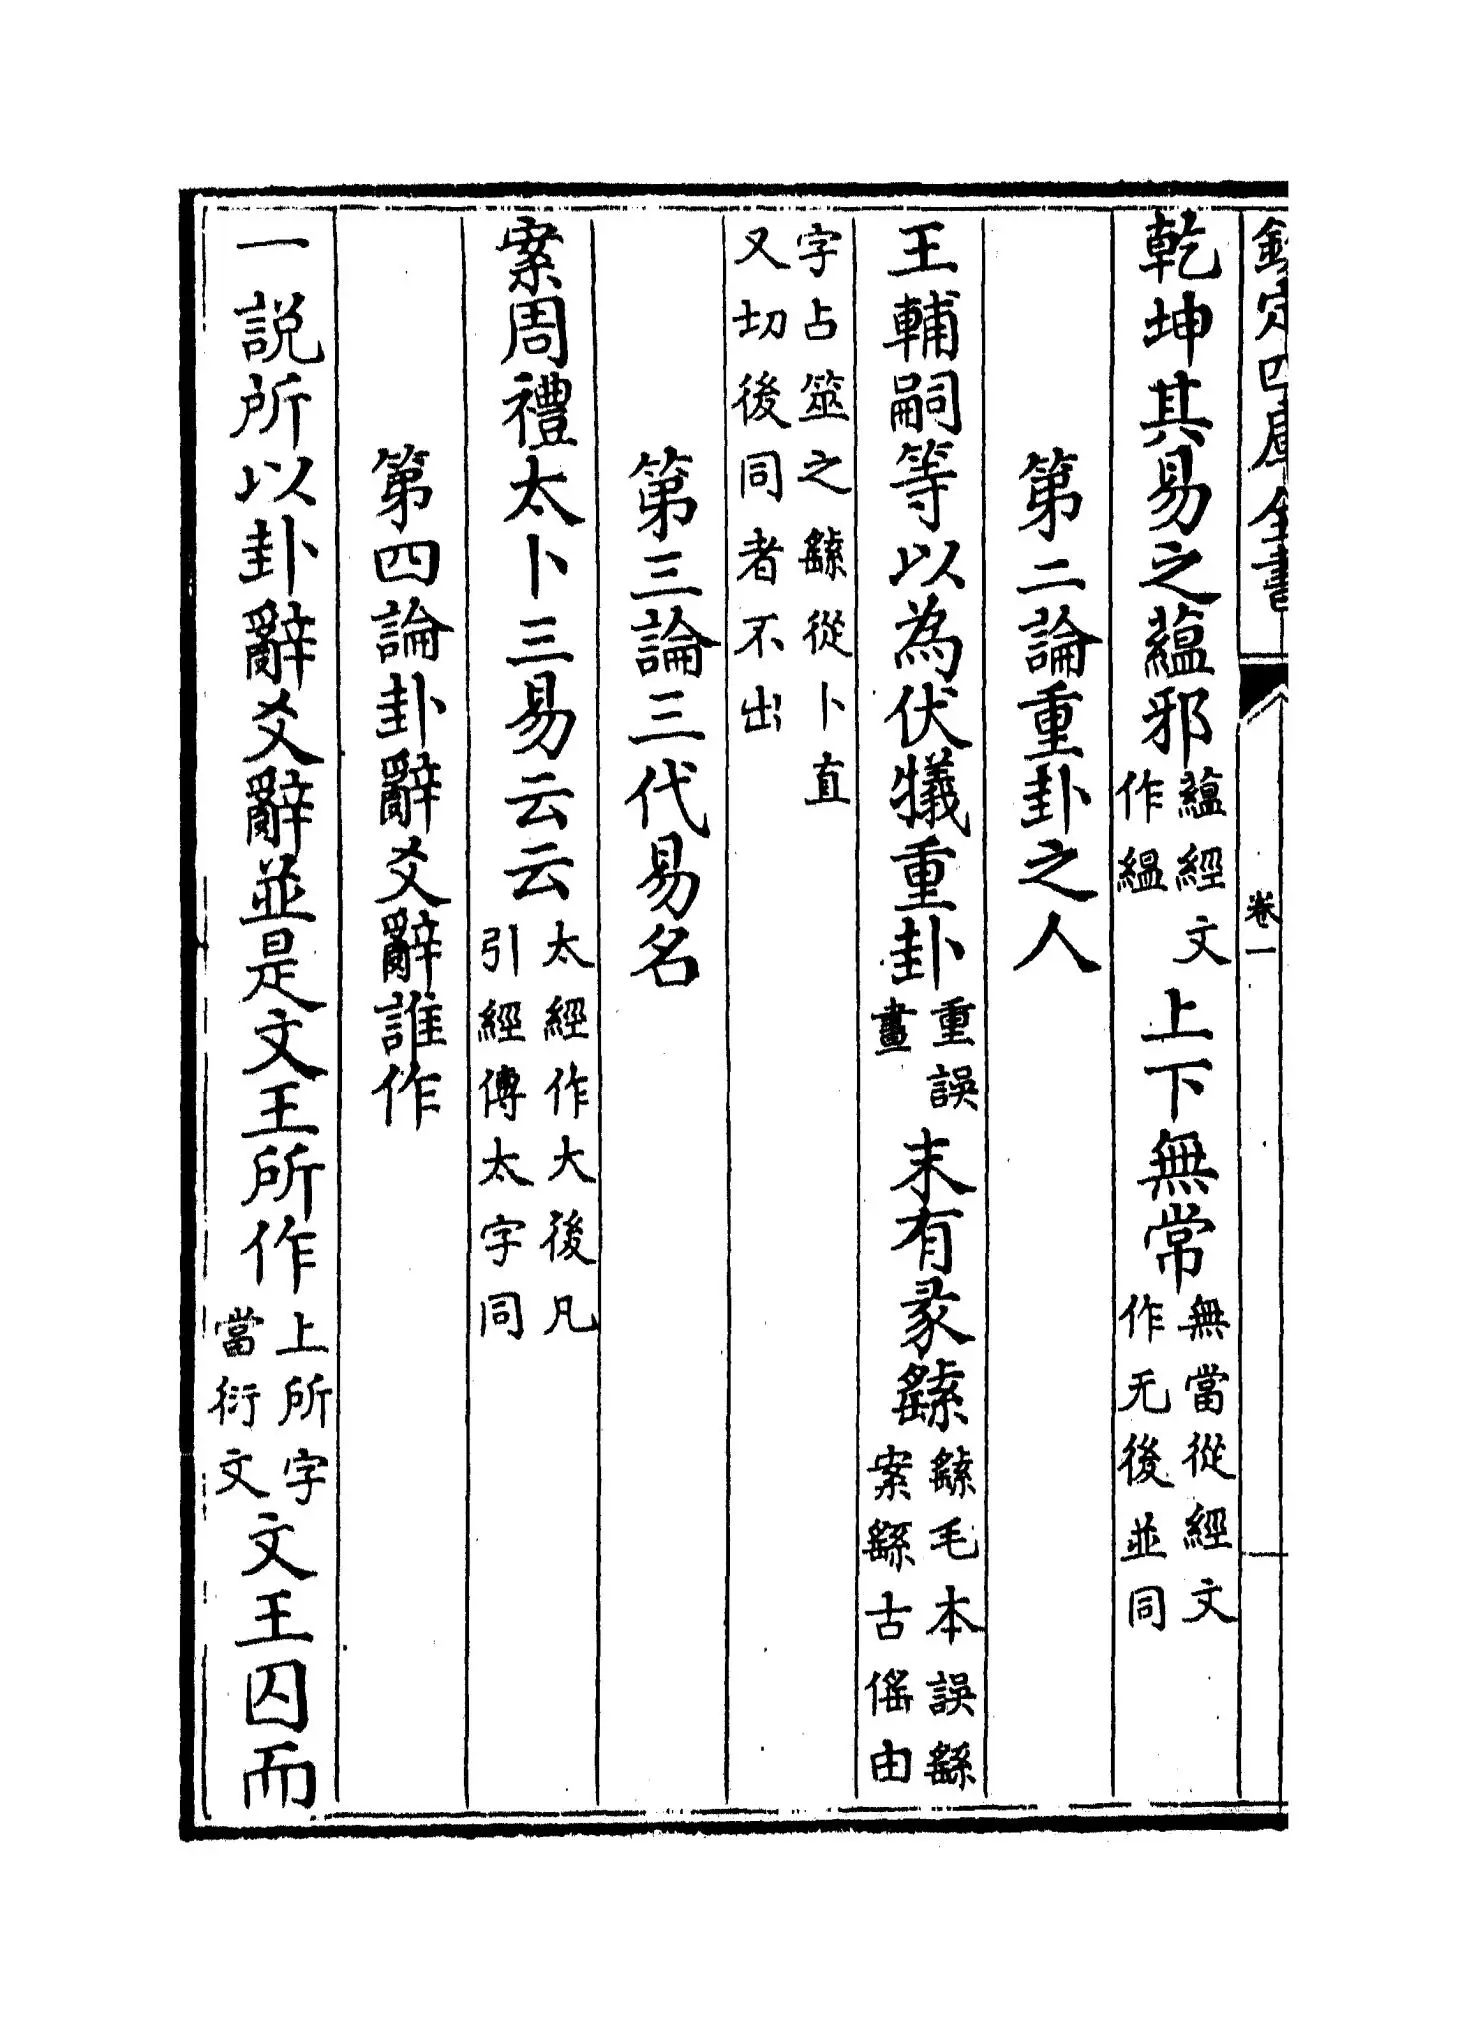 欽定四庫全書
卷一
乾坤其易之蘊邪蘊經文作緼上下無常無當從經文作无後並同
第二論重卦之人
王輔嗣等以為伏犧重卦重誤畫末有彖繇繇毛本誤繇案繇古傜由
字占筮之繇從卜直又切後同者不出
第三論三代易名
案周禮太卜三易云云太經作大後凡引經傳太字同
第四論卦辭爻辭誰作
一說所以卦辭爻辭並是文王所作上所字當衍文文王囚而